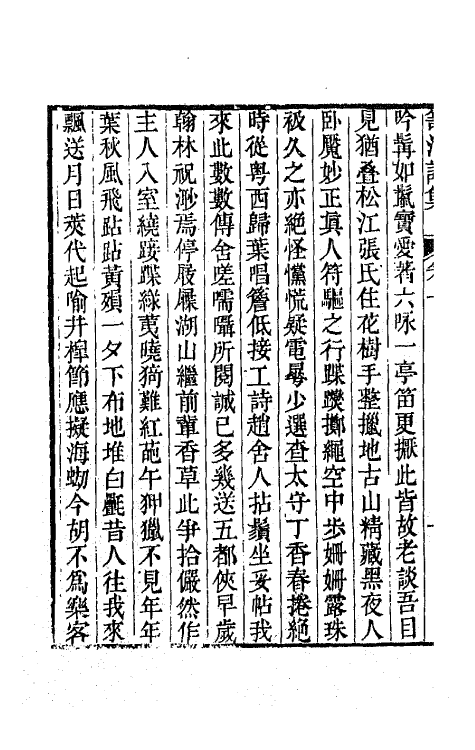 吟髯如氄寶愛著六咏一亭笛更撅此皆故老談吾目
見猶叠松江張氏住花樹手整擸地古山精藏黑夜人
卧魘妙正真人符驅之行蹀躞擲繩空中歩姍姍露珠
衱久之亦絶怪儻慌疑電少選查太守丁香春捲絕
時從粤西歸葉唱簷低接工詩趙舍人拈鬚坐妥帖我
來此數數傳舍嗟嚅囁所閱誠已多幾送五都俠早歲
翰林祝渺焉停屐屧湖山繼前輩香草此爭拾儼然作
主人入室繞䠟蹀綠荑曉猗難紅葩午狎獵不見年年
葉秋風飛跕跕黃殞一夕下布地堆白氎昔人往我來
飄送月日莢代起喻井桿節應擬海蛚今胡不爲樂客